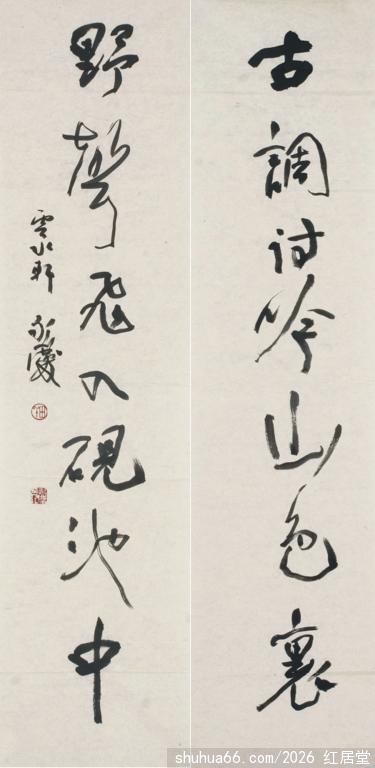 古調詩吟山色裏
野聲飛入硯池中
雲水軒
shuhua66.com/2026 红居堂